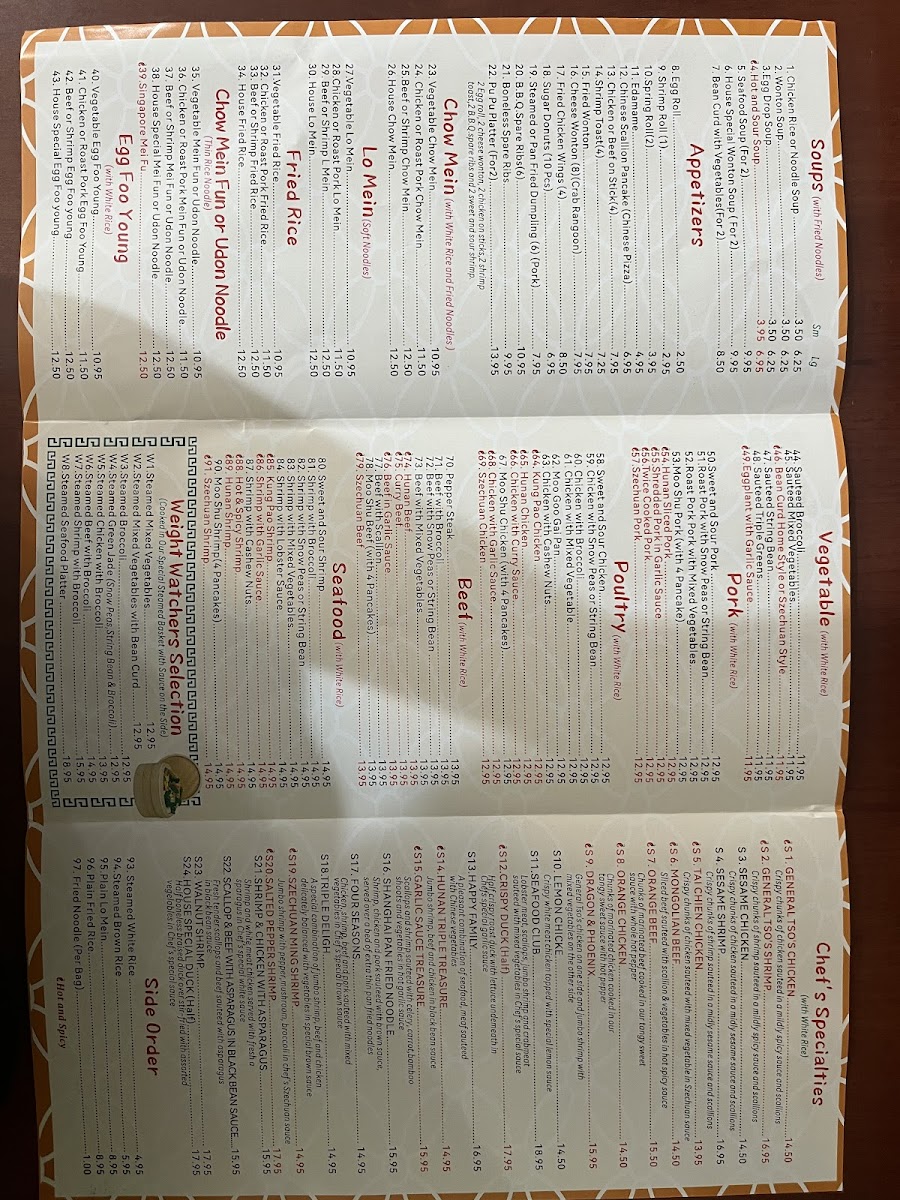 Soups (with Fried Noodles)
Sm Lg
1. Chicken Rice or Noodle Soup 3.50 6.25
2. Wonton Soup 3.50 6.25
3. Egg Drop Soup 3.50 6.25
4. Hot and Sour Soup 3.95 6.95
5. Seafood Soup (For 2) 9.95
6. House Special Wonton Soup (For 2) 9.95
7. Bean Curd with Vegetables(For 2) 8.50
Appetizers
8. Egg Roll 2.50
9. Shrimp Roll (1) 2.95
10. Spring Roll(2) 3.95
11. Edamame 4.95
12. Chinese Scallion Pancake (Chinese Pizza) 6.95
13. Chicken or Beef on Stick(4) 7.95
14. Shrimp Toast(4) 7.25
15. Fried Wonton 7.95
16. Cheese Wonton (8)(Crab Rangoon) 7.95
17. Fried Chicken Wings (4) 8.50
18. Sugar Donuts (10 Pcs) 6.95
19. Steamed or Pan Fried Dumpling (6) (Pork) 7.95
20. B.B.Q. Spare Ribs(6) 10.95
21. Boneless Spare Ribs 9.95
22. Pu Pu Platter (For2) 13.95
2 Egg roll, 2 cheese wonton, 2 chicken on sticks,2 shrimp
toast, 2 B.B.Q spare ribs and 2 sweet and sour shrimp.
Chow Mein (with White Rice and Fried Noodles)
23. Vegetable Chow Mein 10.95
24. Chicken or Roast Pork Chow Mein 11.50
25. Beef or Shrimp Chow Mein 12.50
26. House Chow Mein 12.50
Lo Mein (Soft Noodles)
27. Vegetable Lo Mein 10.95
28. Chicken or Roast Pork Lo Mein 11.50
29. Beef or Shrimp Lo Mein 12.50
30. House Lo Mein 12.50
Fried Rice
31. Vegetable Fried Rice 10.95
32. Chicken or Roast Pork Fried Rice 11.50
33. Beef or Shrimp Fried Rice 12.50
34. House Fried Rice 12.50
Chow Mein Fun or Udon Noodle
(Thin Rice Noodle)
35. Vegetable Mein Fun or Udon Noodle 10.95
36. Chicken or Roast Pork Mein Fun or Udon Noodle 11.50
37. Beef or Shrimp Mei Fun or Udon Noodle 12.50
38. House Special Mei Fun or Udon Noodle 12.50
39. Singapore Mei Fu 12.50
Egg Foo Young
(with White Rice)
40. Vegetable Egg Foo Young 10.95
41. Chicken or Roast Pork Egg Foo Young 11.50
42. Beef or Shrimp Egg Foo young 12.50
43. House Special Egg Foo young 12.50
Vegetable (with White Rice)
44. Sauteed Broccoli 11.95
45. Sauteed Mixed Vegetables 11.95
46. Bean Curd Home Style or Szechuan Style 11.95
47. Sauteed String Bean 11.95
48. Sauteed Triple Greens 11.95
49. Eggplant with Garlic Sauce 11.95
Pork (with White Rice)
50. Sweet and Sour Pork 12.95
51. Roast Pork with Snow Peas or String Bean 12.95
52. Roast Pork with Mixed Vegetables 12.95
53. Moo Shu Pork (with 4 Pancake) 12.95
54. Hunan Sliced Pork 12.95
55. Shredded Pork in Garlic Sauce 12.95
56. Twice Cooked Pork 12.95
57. Szechuan Pork 12.95
Poultry (with White Rice)
58. Sweet and Sour Chicken 12.95
59. Chicken with Snow Peas or String Bean 12.95
60. Chicken with Broccoli 12.95
61. Chicken with Mixed Vegetable 12.95
62. Moo Goo Gai Pan 12.95
63. Chicken with Cashew Nuts 12.95
64. Kung Pao Chicken 12.95
65. Hunan Chicken 12.95
66. Chicken with Curry Sauce 12.95
67. Moo Shu Chicken (with 4 Pancakes) 12.95
68. Chicken with Garlic Sauce 12.95
69. Szechuan Chicken 12.95
Beef (with White Rice)
70. Pepper Steak 13.95
71. Beef with Broccoli 13.95
72. Beef with Snow Peas or String Bean 13.95
73. Beef with Mixed Vegetables 13.95
74. Hunan Beef 13.95
75. Curry Beef 13.95
76. Beef in Garlic Sauce 13.95
77. Beef with Scallion 13.95
78. Moo Shu Beef (with 4 Pancakes) 13.95
79. Szechuan Beef 13.95
Seafood (with White Rice)
80. Sweet and Sour Shrimp 14.95
81. Shrimp with Broccoli 14.95
82. Shrimp with Snow Peas or String Bean 14.95
83. Shrimp with Mixed Vegetables 14.95
84. Shrimp with Lobster Sauce 14.95
85. Kung Pao Shrimp 14.95
86. Shrimp with Garlic Sauce 14.95
87. Shrimp with Cashew Nuts 14.95
88. Salt & Pepper Shrimp 14.95
89. Hunan Shrimp 14.95
90. Moo Shu Shrimp(4 Pancakes) 14.95
91. Szechuan Shrimp 14.95
Weight Watchers Selection
(Cooked in Our Special Steamed Basket with Sauce on the Side)
W1. Steamed Mixed Vegetables 12.95
W2. Steamed Mixed Vegetables with Bean Curd 12.95
W3. Steamed Broccoli 12.95
W4. Steamed Green Jade (Snow Peas, String Bean & Broccoli) 12.95
W5. Steamed Chicken with Broccoli 13.95
W6. Steamed Beef with Broccoli 14.95
W7. Steamed Shrimp with Broccoli 15.95
W8. Steamed Seafood Platter 18.95
Chef's Specialties
(with White Rice)
S 1. GENERAL TSO'S CHICKEN 14.50
Crispy chunks of chicken sauteed in a mildly spicy sauce and scallions
S 2. GENERAL TSO'S SHRIMP 16.95
Crispy chunks of chicken sauteed in a mildly spicy sauce and scallions
S 3. SESAME CHICKEN 14.50
Crispy chunks of chicken sauteed in a midly sesame sauce and scallions
S 4. SESAME SHRIMP 16.95
Crispy chunks of shrimp sauteed in a midly sesame sauce and scallions
S 5. TAI CHIEN CHICKEN 13.95
Chunks of chicken sauteed with mixed vegetable in Szechuan sauce
S 6. MONGOLIAN BEEF 14.50
Sliced beef sauteed with scallion & vegetables in hot spicy sauce
S 7. ORANGE BEEF 15.50
Chunks of marinated beef cooked in our tangy sweet
S 8. ORANGE CHICKEN 14.50
Chunks of marinated chicken cooked in our
S 9. DRAGON & PHOENIX 15.95
General Tso's chicken on one side and jumbo shrimp with
mixed vegetables on the other side
S10. LEMON CHICKEN 14.50
Crispy white meat chicken topped with special lemon sauce
S11. SEAFOOD CLUB 18.95
Lobster meat, scallops, jumbo shrimp and crabmeat
sauteed with mixed vegetables in Chef's special sauce
S12. CRISPY DUCK (Half) 17.95
Crispy fried duck with lettuce underneath in
Chef's special garlic sauce
S13. HAPPY FAMILY 16.95
A pleasant combination of seafood, meat sauteed
with vegetables
S14. HUNAN TRIPLE TREASURE 14.95
Jumbo shrimp, beef and chicken in black bean sauce
S15. GARLIC SAUCE TREASURE 15.95
Scallops and shrimp sauteed with celery, carrot, bamboo
shoots and vegetables in hot garlic sauce
S16. SHANGHAI PAN FRIED NOODLE 15.95
Shrimp, chicken and pork sauteed with brown sauce,
served on a bed of extra thin pan fried noodles
S17. FOUR SEASONS 14.95
Chicken, shrimp, beef and pork sauteed with mixed
vegetables in brown sauce
S18. TRIPLE DELIGH 14.95
A special combination of jumbo shrimp, beef and chicken
delicately balanced with vegetables in special brown sauce
S19. SZECHUAN MING SHRIMP 14.95
Jumbo shrimp with pepper, mushroom, broccoli in chef's Szechuan sauce
S20. SALTED PEPPER SHRIMP 17.95
S21. SHRIMP & CHICKEN WITH ASPARAGUS 15.95
Shrimp and white meat chicken served with fresh a
asparagus in Chef's white sauce
S22. SCALLOP & BEEF WITH ASPARAGUS IN BLACK BEAN SAUCE 15.95
Fresh tenders scallops and beef sauteed with asparagus
in black bean sauce
S23. WALNUT SHRIMP 17.95
S24. HOUSE SPECIAL DUCK (Half) 17.95
Half boneless braised duck over stir-fried with assorted
vegetables in Chef's special sauce
Side Order
93. Steamed White Rice 4.95
94. Steamed Brown Rice 5.95
95. Plain Lo Mein 8.95
96. Plain Fried Rice 8.95
97. Fried Noodle (Per Bag) 1.00
Hot and Spicy